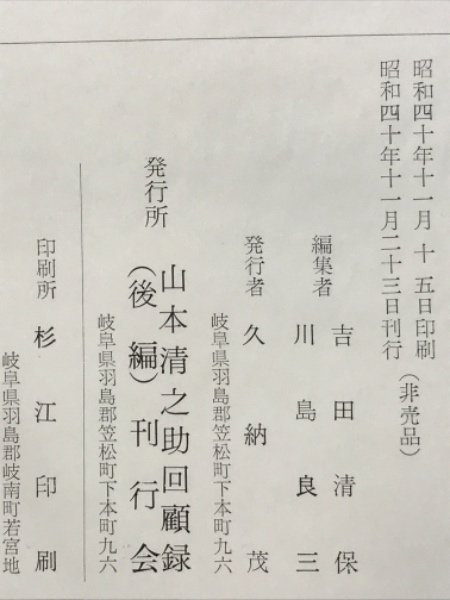 昭和四十年十一月十五日印刷
昭和四十年十一月二十三日刊行
(非売品)
編集者
吉田清保
川島良三
発行者 久納茂
岐阜県羽島郡笠松町下本町九六
発行所
山本清之助回顧録
(後編)刊行会
岐阜県羽島郡笠松町下本町九六
印刷所 杉江印刷
岐阜県羽島郡岐南町若宮地